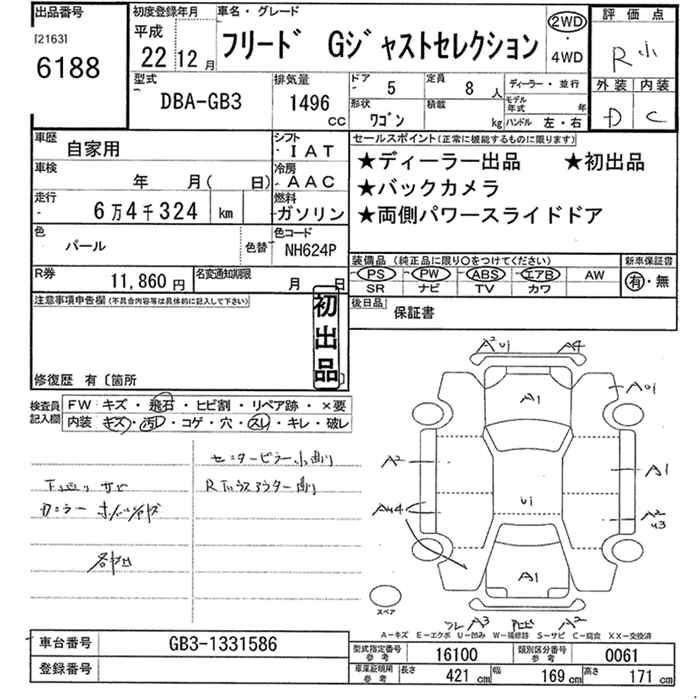 出品番号
[2163]
6188
初度登録年月
平成
22 12月
車名・グレード
フリード Gジャストセレクション
2WD
・
4WD
評価点
R
外装 内装
D C
型式
DBA-GB3
排気量
1496
cc
ドア 5
定員 8 人
ディーラー・並行
形状
ワゴン
積載
kg
モデル年式 年
ハンドル 左・右
車歴
自家用
シフト
IAT
車検
年 月( 日)
冷房
AAC
走行
6万4千324 km
燃料
ガソリン
色
パール
色替
色コード
NH624P
R券
11,860 円
名変通知期限
月 日
セールスポイント(正常に機能するものに限ります)
★ディーラー出品 ★初出品
★バックカメラ
★両側パワースライドドア
装備品(純正品に限り○をつけてください)
新車保証書
PS PW ABS エアB AW
SR ナビ TV カワ
有・無
後日品
保証書
注意事項申告欄(不具合内容等は具体的に記入して下さい)
初出品
修復歴 有〔箇所
検査員記入欄
FW キズ・飛石・ヒビ割・リペア跡・×要
内装 キズ・汚レ・コゲ・穴・スレ・キレ・破レ
センターピラー
下廻り サビ
R
A2 U1 A4
A1
A2
A1
U1
A2
U3
A1
スペア
A3
A2
A-キズ E-エクボ U-凹み W-補修跡 S-サビ C-腐食 XX-交換済
車台番号
GB3-1331586
登録番号
型式指定番号 参考
16100
類別区分番号 参考
0061
車庫証明用 参考
長さ 421 cm
幅 169 cm
高さ 171 cm